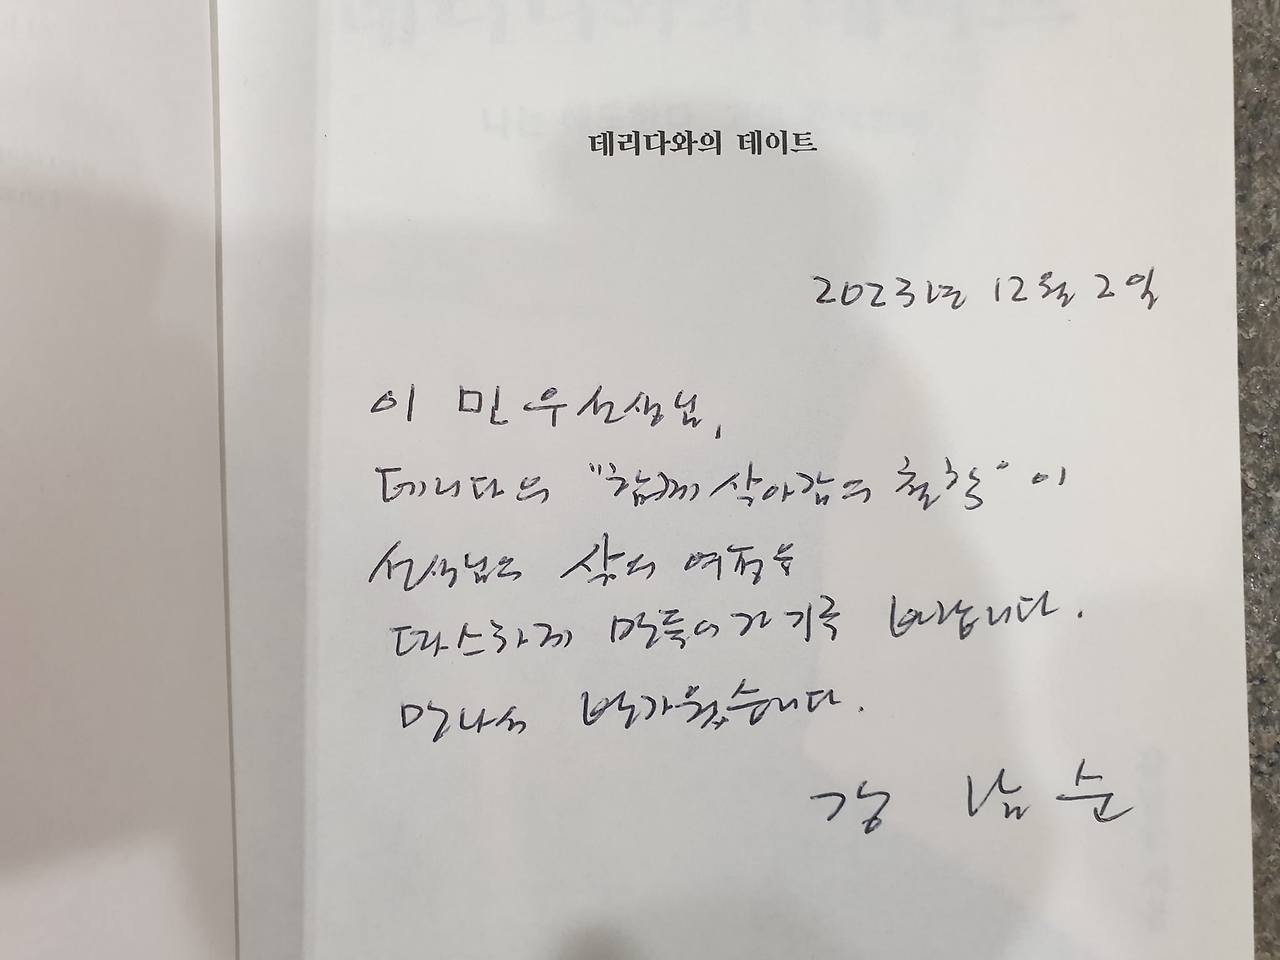 데리다와의 데이트
2023년 12월 2일
이 민 우 선생님,
데리다의 "함께 살아감의 철학"이
선생님의 삶의 여정을
따스하게 만들어가기를 바랍니다.
만나서 반가웠습니다.
강 남 순